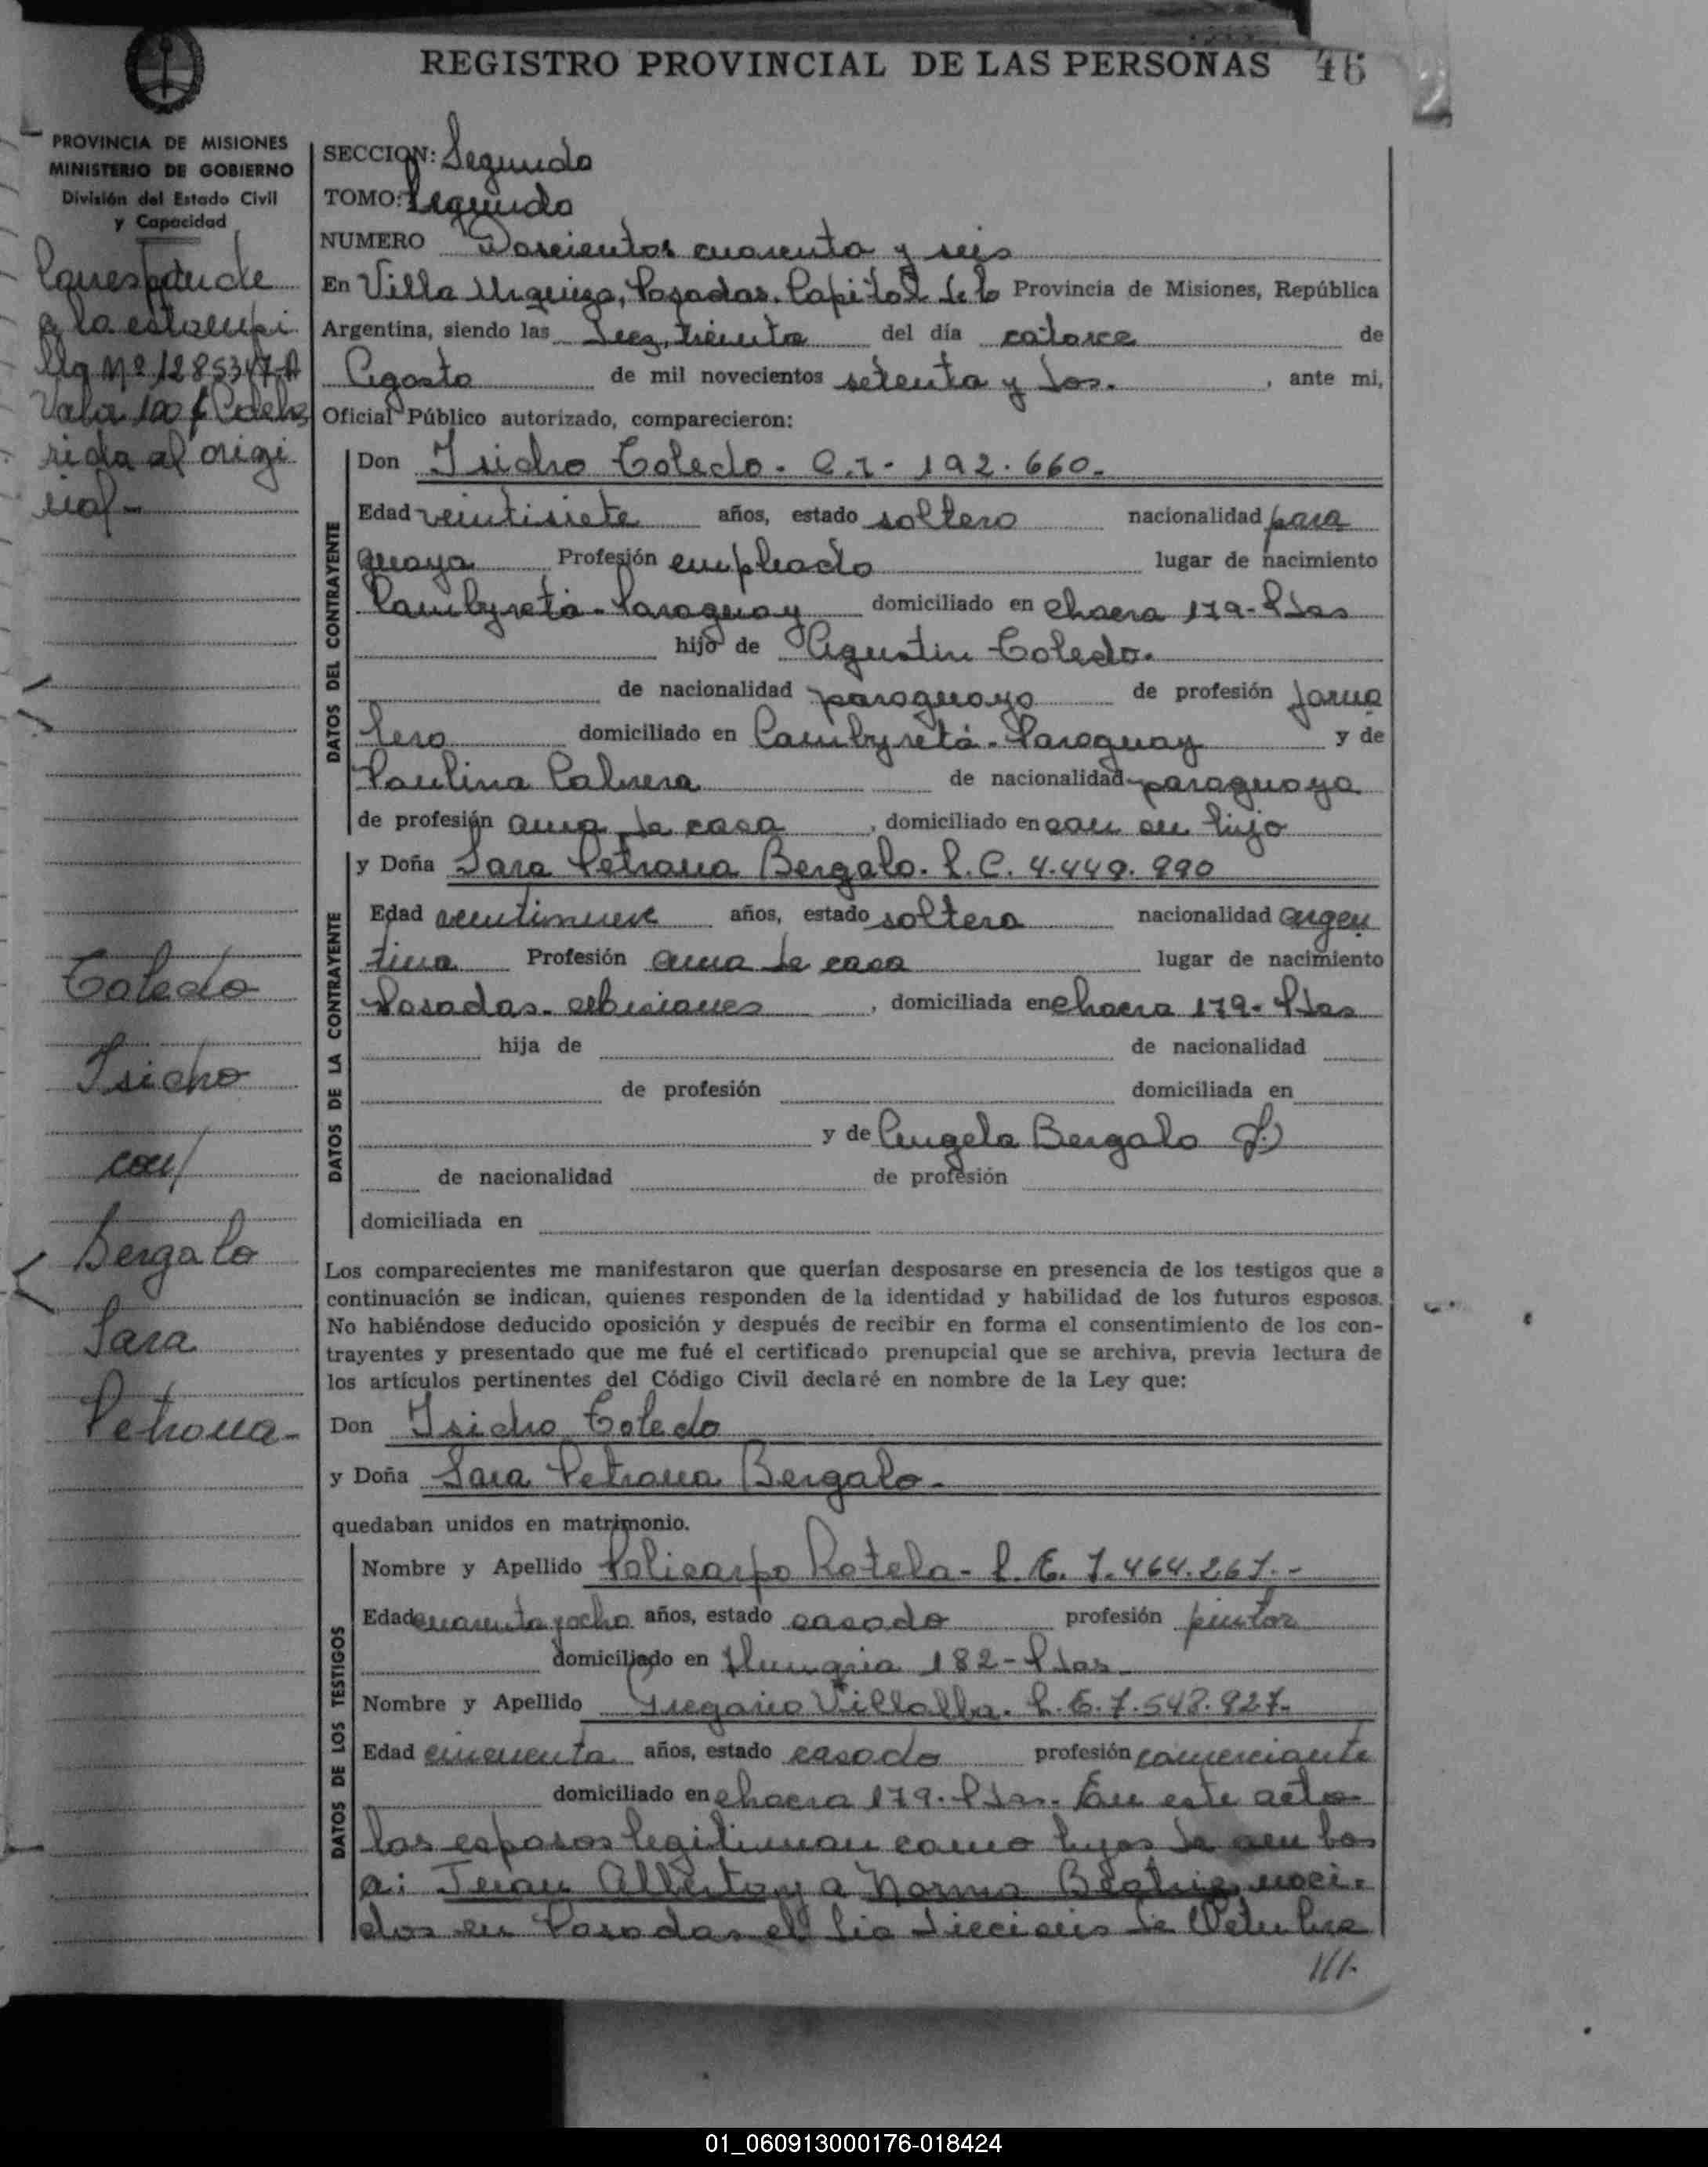 REGISTRO PROVINCIAL DE LAS PERSONAS 46
PROVINCIA DE MISIONES
MINISTERIO DE GOBIERNO
División del Estado Civil
y Capacidad
Corresponde
a la estampi
lla Nº 1285347-A
Valor 100 $ adhe
rida al origi
nal-
Toledo
Isidro
con/
Bergalo
Sara
Petrona-
SECCION: Segunda
TOMO: Segundo
NUMERO Doscientos cuarenta y seis
En Villa Urquiza, Posadas. Capital de la Provincia de Misiones, República
Argentina, siendo las diez, treinta del día catorce de
Agosto de mil novecientos setenta y dos. , ante mi,
Oficial Público autorizado, comparecieron:
DATOS DEL CONTRAYENTE
Don Isidro Toledo. C.I. 192.660.
Edad veintisiete años, estado soltero nacionalidad para
guaya Profesión empleado lugar de nacimiento
Cambyretá-Paraguay domiciliado en chacra 179-Pdas
hijo de Agustin Toledo.
de nacionalidad paraguayo de profesión jorna
lero domiciliado en Cambyretá-Paraguay y de
Paulina Cabrera de nacionalidad paraguaya
de profesión ama de casa , domiciliado en con su hijo
DATOS DE LA CONTRAYENTE
y Doña Sara Petrona Bergalo. L.C. 4.449.990
Edad veintinueve años, estado soltera nacionalidad argen
tina Profesión ama de casa lugar de nacimiento
Posadas. Misiones , domiciliada en chacra 179-Pdas
hija de de nacionalidad
de profesión domiciliada en
y de Angela Bergalo (f.)
de nacionalidad de profesión
domiciliada en
Los comparecientes me manifestaron que querían desposarse en presencia de los testigos que a
continuación se indican, quienes responden de la identidad y habilidad de los futuros esposos.
No habiéndose deducido oposición y después de recibir en forma el consentimiento de los con-
trayentes y presentado que me fué el certificado prenupcial que se archiva, previa lectura de
los artículos pertinentes del Código Civil declaré en nombre de la Ley que:
Don Isidro Toledo
y Doña Sara Petrona Bergalo-
quedaban unidos en matrimonio.
DATOS DE LOS TESTIGOS
Nombre y Apellido Policarpo Rotela- L.E. 7.464.267.-
Edad cuarenta y ocho años, estado casado profesión pintor
domiciliado en Hungria 182-Pdas
Nombre y Apellido Gregorio Villalba. L.E. 7.548.927-
Edad cincuenta años, estado casado profesión comerciante
domiciliado en chacra 179-Pdas. En este acto
los esposos legitiman como hijos de ambos
a: Juan Alberto y a Norma Beatriz naci-
dos en Posadas el dia dieciseis de Octubre
///.
01_060913000176-018424